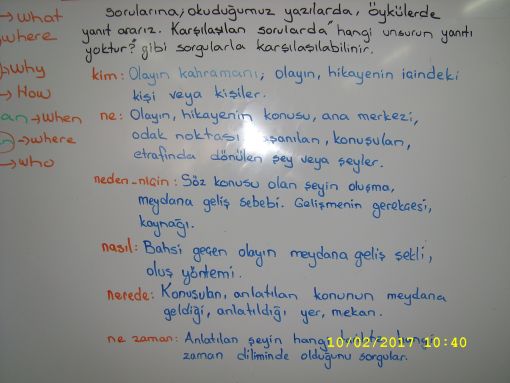 → what
where
→ Why
→ How
an → when
n → where
→ who
sorularına, okuduğumuz yazılarda, öykülerde
yanıt ararız. Karşılaşılan sorularda "hangi unsurun yanıtı
yoktur?" gibi sorgularla karşılaşılabilinir.
kim: Olayın kahramanı, olayın, hikayenin içindeki
kişi veya kişiler.
ne: Olayın, hikayenin konusu, ana merkezi,
odak noktası, konuşulan,
etrafında dönülen şey veya şeyler.
neden-niçin: Söz konusu olan şeyin oluşma,
meydana geliş sebebi. Gelişmenin gerekçesi,
kaynağı.
nasıl: Bahsi geçen olayın meydana geliş şekli,
oluş yöntemi.
nerede: Konuşulan, anlatılan konunun meydana
geldiği, anlatıldığı yer, mekan.
ne zaman: Anlatılan şeyin hangi
zaman diliminde olduğunu sorgular.
10/02/2017 10:40